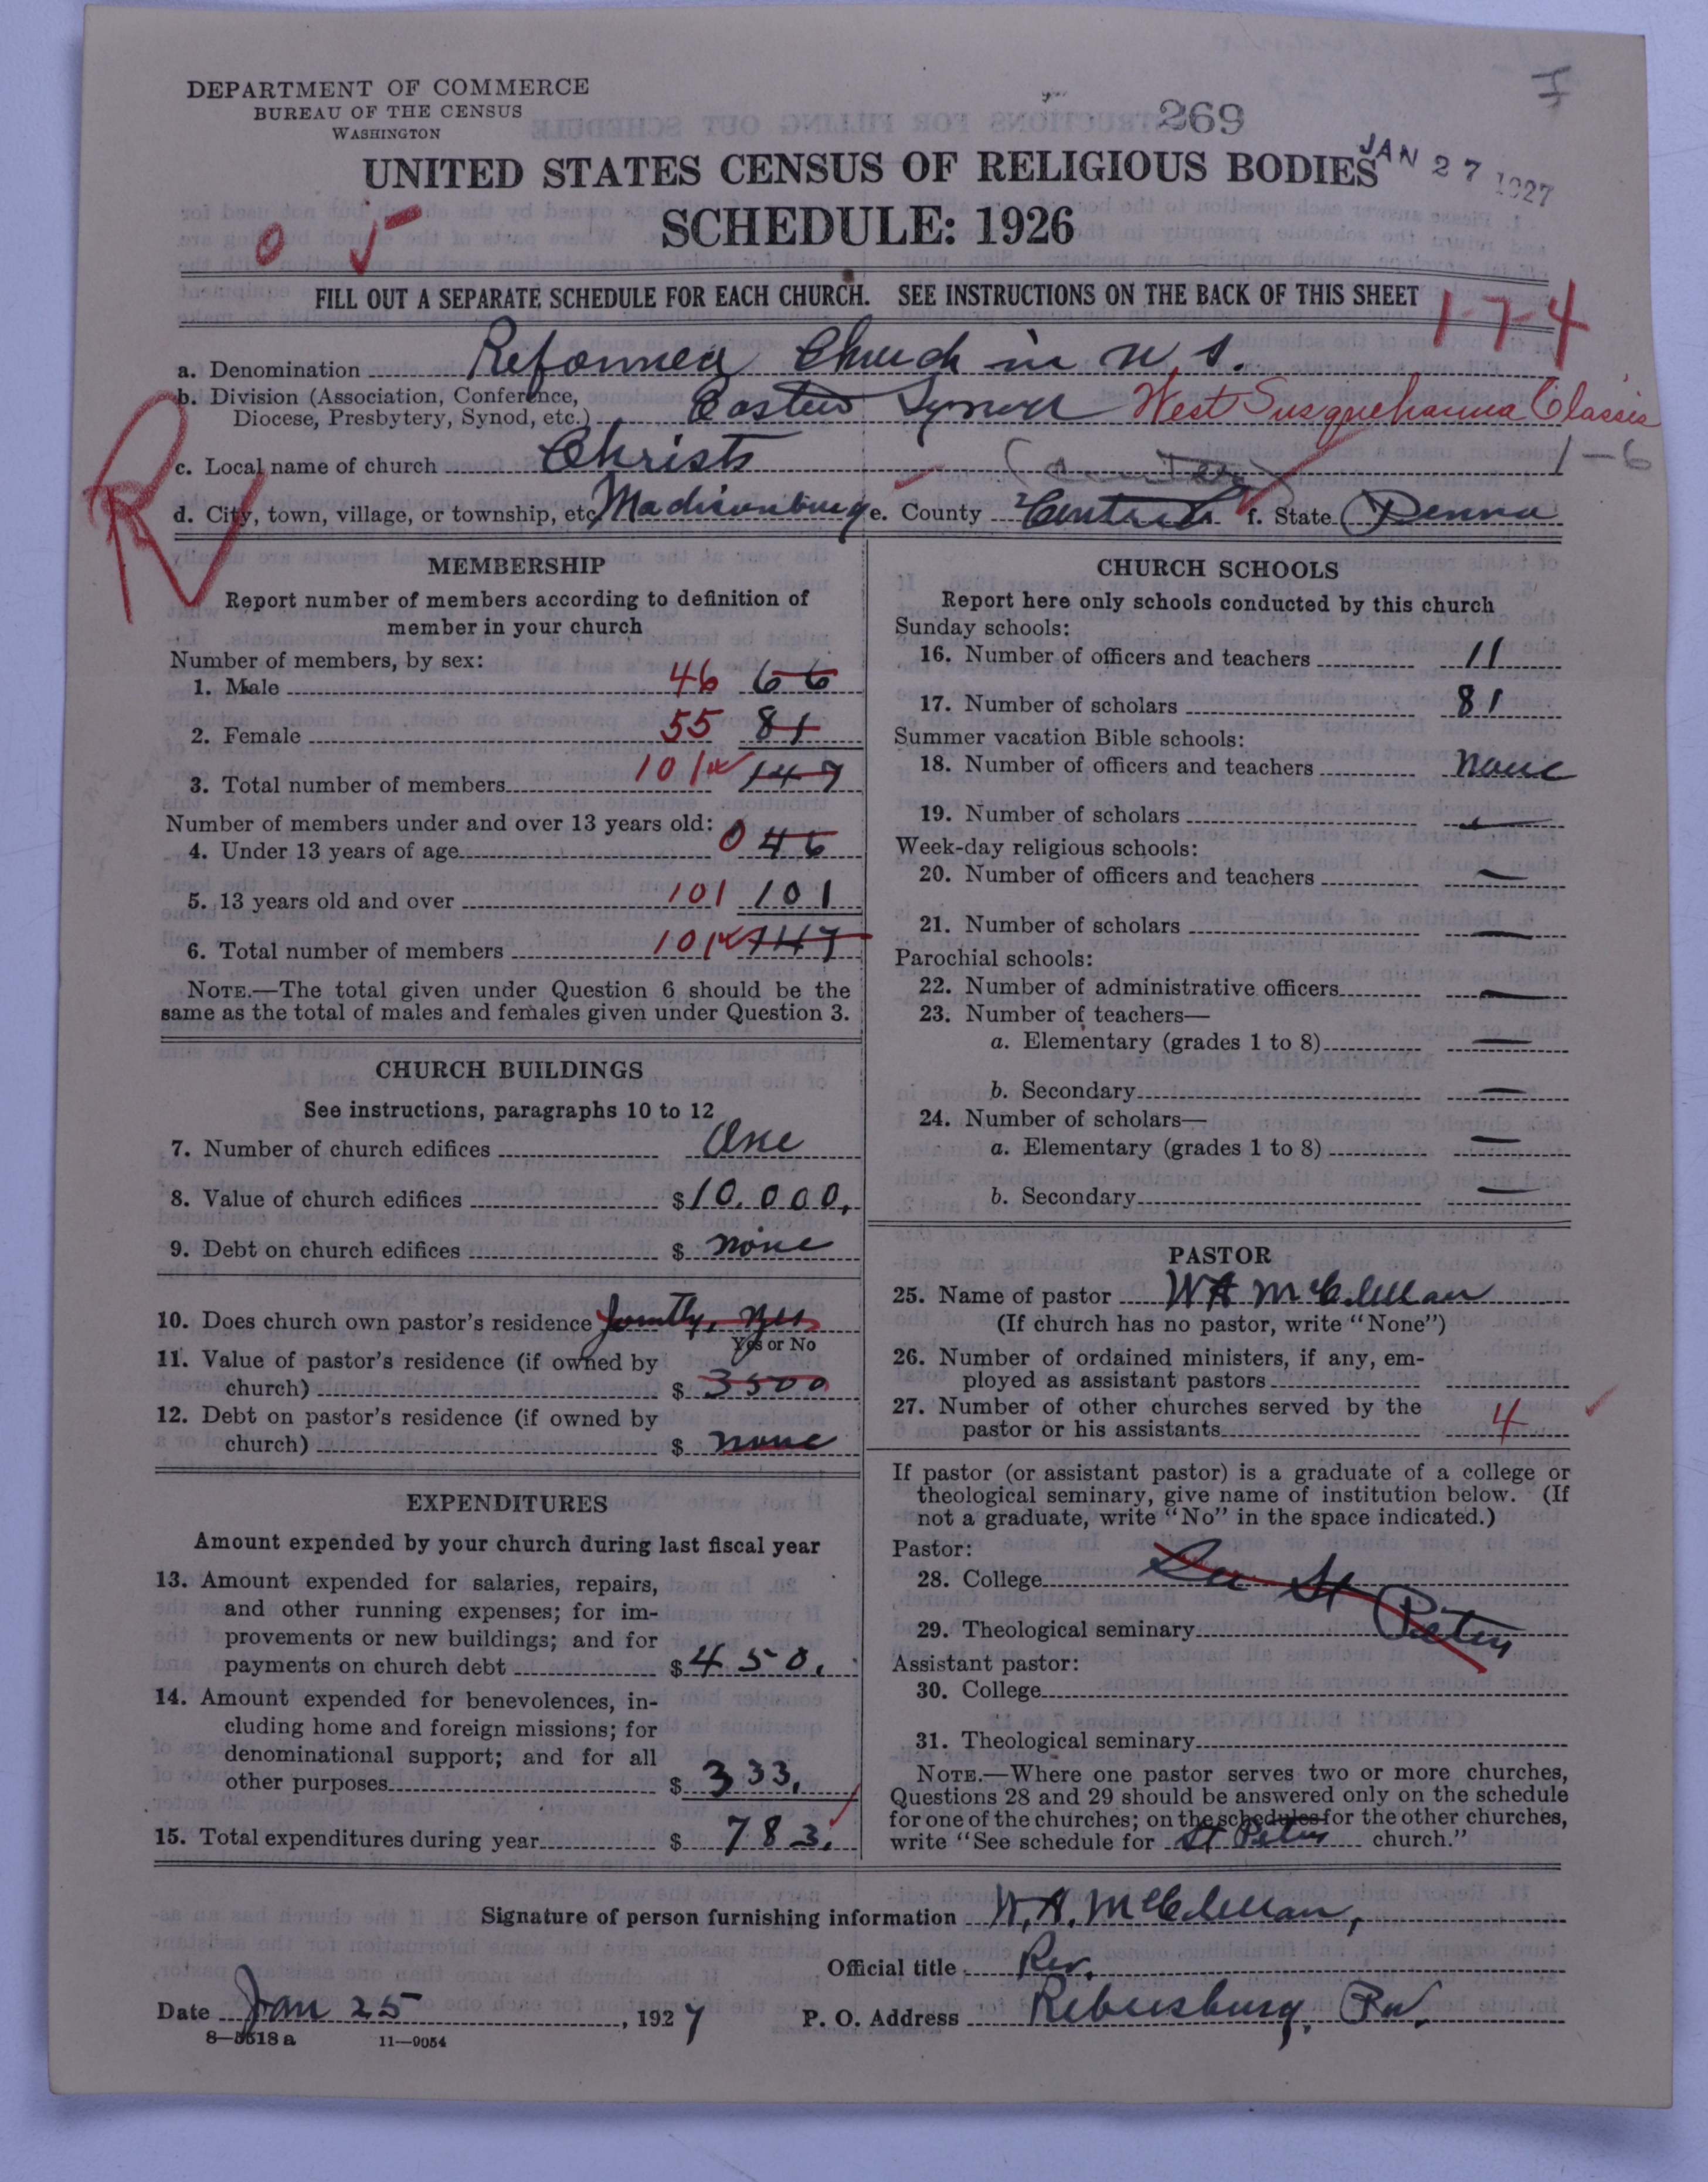 DEPARTMENT OF COMMERCE
BUREAU OF THE CENSUS
WASHINGTON
269
JAN 27 1927
UNITED STATES CENSUS OF RELIGIOUS BODIES
SCHEDULE: 1926
0 5
FILL OUT A SEPARATE SCHEDULE FOR EACH CHURCH. SEE INSTRUCTIONS ON THE BACK OF THIS SHEET
1-7-4
a. Denomination Reformed Church in U. S.
b. Division (Association, Conference, Diocese, Presbytery, Synod, etc.) Eastern Synod West Susquehanna Classis
c. Local name of church Christs 1-6
d. City, town, village, or township, etc. Madisonburg e. County Centre f. State Penna
R
MEMBERSHIP
Report number of members according to definition of
member in your church
Number of members, by sex:
1. Male 46 66
2. Female 55 81
3. Total number of members 101 147
Number of members under and over 13 years old:
4. Under 13 years of age 0 46
5. 13 years old and over 101 101
6. Total number of members 101 147
NOTE.—The total given under Question 6 should be the
same as the total of males and females given under Question 3.
CHURCH BUILDINGS
See instructions, paragraphs 10 to 12
7. Number of church edifices One
8. Value of church edifices $10,000.
9. Debt on church edifices $ none
10. Does church own pastor's residence Jointly, Yes
Yes or No
11. Value of pastor's residence (if owned by
church) $ 3500
12. Debt on pastor's residence (if owned by
church) $ none
EXPENDITURES
Amount expended by your church during last fiscal year
13. Amount expended for salaries, repairs,
and other running expenses; for im-
provements or new buildings; and for
payments on church debt $ 450.
14. Amount expended for benevolences, in-
cluding home and foreign missions; for
denominational support; and for all
other purposes $ 333.
15. Total expenditures during year $ 783.
CHURCH SCHOOLS
Report here only schools conducted by this church
Sunday schools:
16. Number of officers and teachers 11
17. Number of scholars 81
Summer vacation Bible schools:
18. Number of officers and teachers none
19. Number of scholars —
Week-day religious schools:
20. Number of officers and teachers —
21. Number of scholars —
Parochial schools:
22. Number of administrative officers —
23. Number of teachers—
a. Elementary (grades 1 to 8) —
b. Secondary —
24. Number of scholars—
a. Elementary (grades 1 to 8) —
b. Secondary —
PASTOR
25. Name of pastor W A McClellan
(If church has no pastor, write "None")
26. Number of ordained ministers, if any, em-
ployed as assistant pastors
27. Number of other churches served by the
pastor or his assistants 4
If pastor (or assistant pastor) is a graduate of a college or
theological seminary, give name of institution below. (If
not a graduate, write "No" in the space indicated.)
Pastor:
28. College See St Peters
29. Theological seminary
Assistant pastor:
30. College
31. Theological seminary
NOTE.—Where one pastor serves two or more churches,
Questions 28 and 29 should be answered only on the schedule
for one of the churches; on the schedules for the other churches,
write "See schedule for St Peters church."
Signature of person furnishing information W. A. McClellan,
Official title Rev.
Date Jan 25, 1927 P. O. Address Rebersburg, Pa.
8—5518 a 11—9054